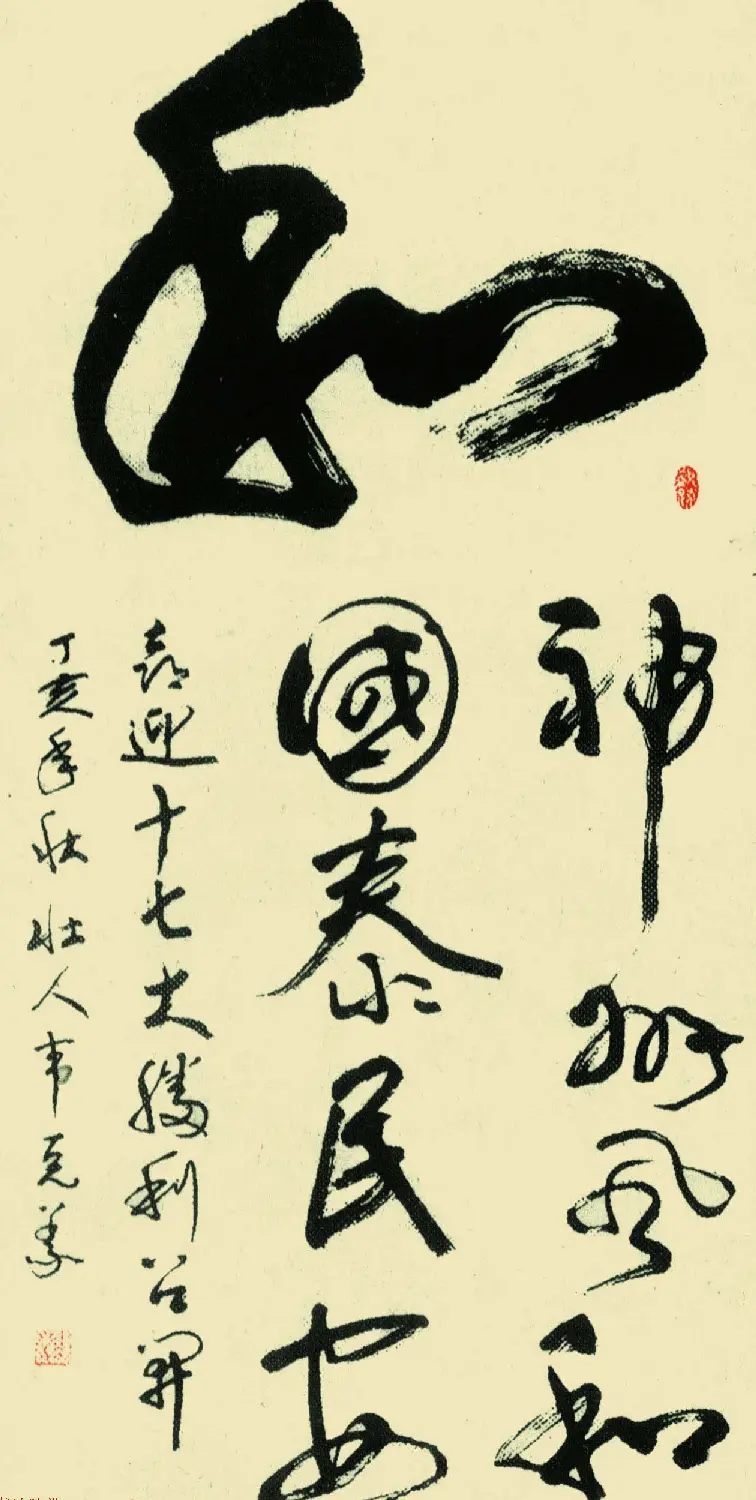 和
神州风和
國泰民安
喜迎十七大勝利召開
丁亥年秋壮人韦克义